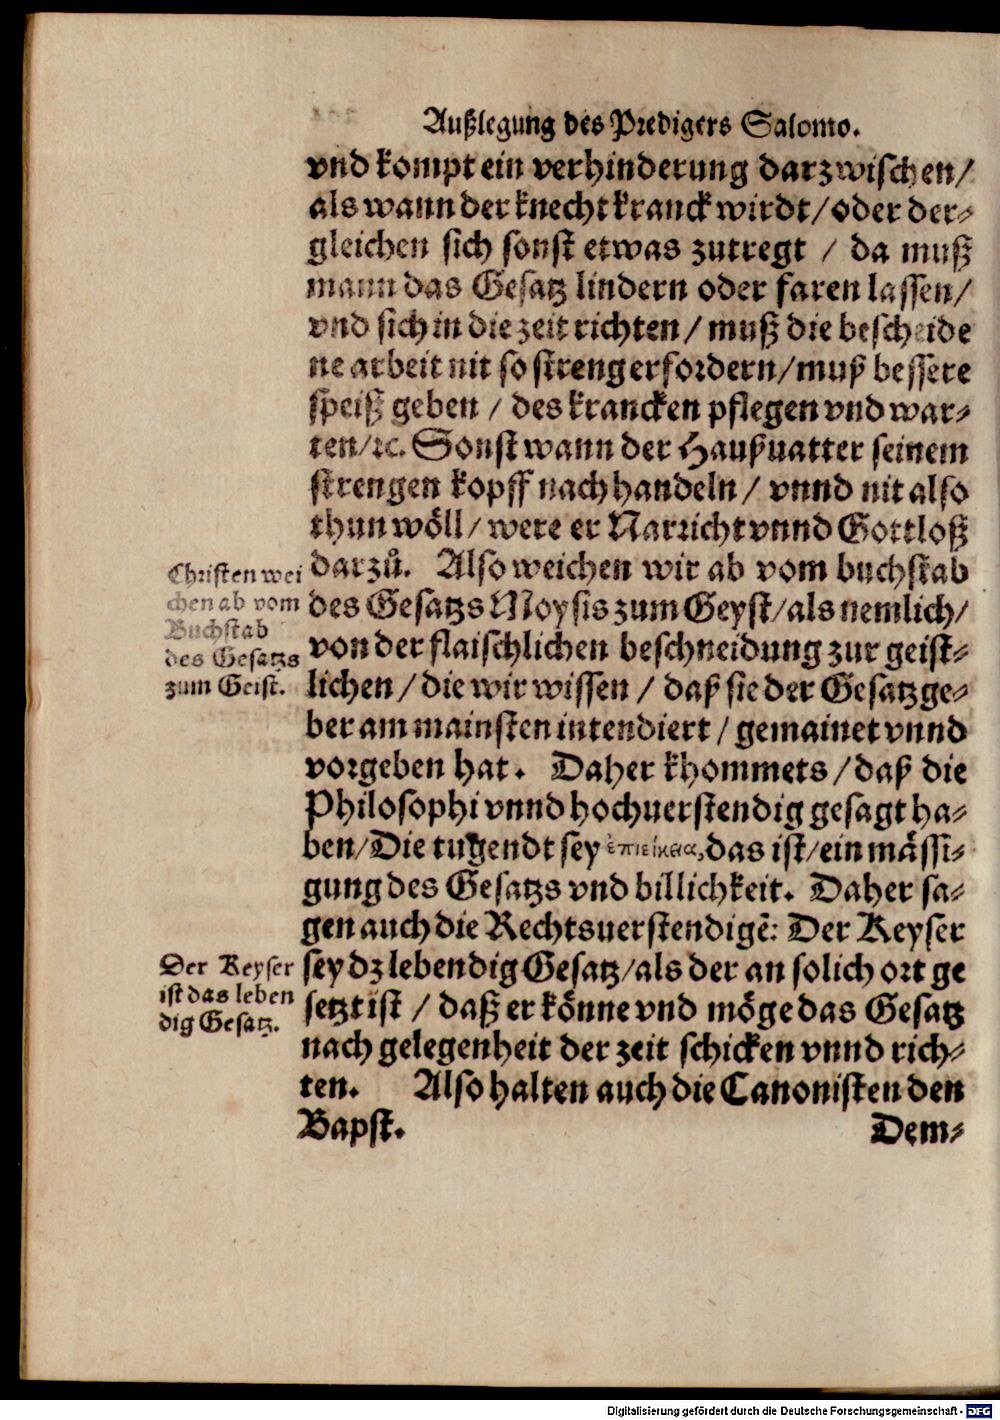 Außlegung des Predigers Salomo.
vnd kompt ein verhinderung darzwischen/
als wann der knecht kranck wirdt/oder der-
gleichen sich sonst etwas zutregt / da muß
mann das Gesatz lindern oder faren lassen/
vnd sich in die zeit richten/ muß die bescheide
ne arbeit nit so streng erfordern/muß bessere
speiß geben / des krancken pflegen vnd war-
ten/ꝛc. Sonst wann der Haußuatter seinem
strengen kopff nach handeln / vnnd nit also
thun wöll/ were er Narricht vnnd Gottloß
darzů. Also weichen wir ab vom buchstab
des Gesatzs Moysis zum Geyst/als nemlich/
von der flaischlichen beschneidung zur geist-
lichen/die wir wissen / daß sie der Gesatzge-
ber am mainsten intendiert/gemainet vnnd
vorgeben hat. Daher khommets/daß die
Philosophi vnnd hochuerstendig gesagt ha-
ben/Die tugendt sey ἐπιείκεια, das ist/ein mässi-
gung des Gesatzs vnd billichkeit. Daher sa-
gen auch die Rechtsuerstendigē: Der Keyser
sey dz lebendig Gesatz/als der an solich ort ge
setzt ist / daß er könne vnd möge das Gesatz
nach gelegenheit der zeit schicken vnnd rich-
ten. Also halten auch die Canonisten den
Bapst.
Dem-
Christen wei
chen ab vom
Buchstab
des Gesatzs
zum Geist.
Der Keyser
ist das leben
dig Gesatz.
Digitalisierung gefördert durch die Deutsche Forschungsgemeinschaft - DFG